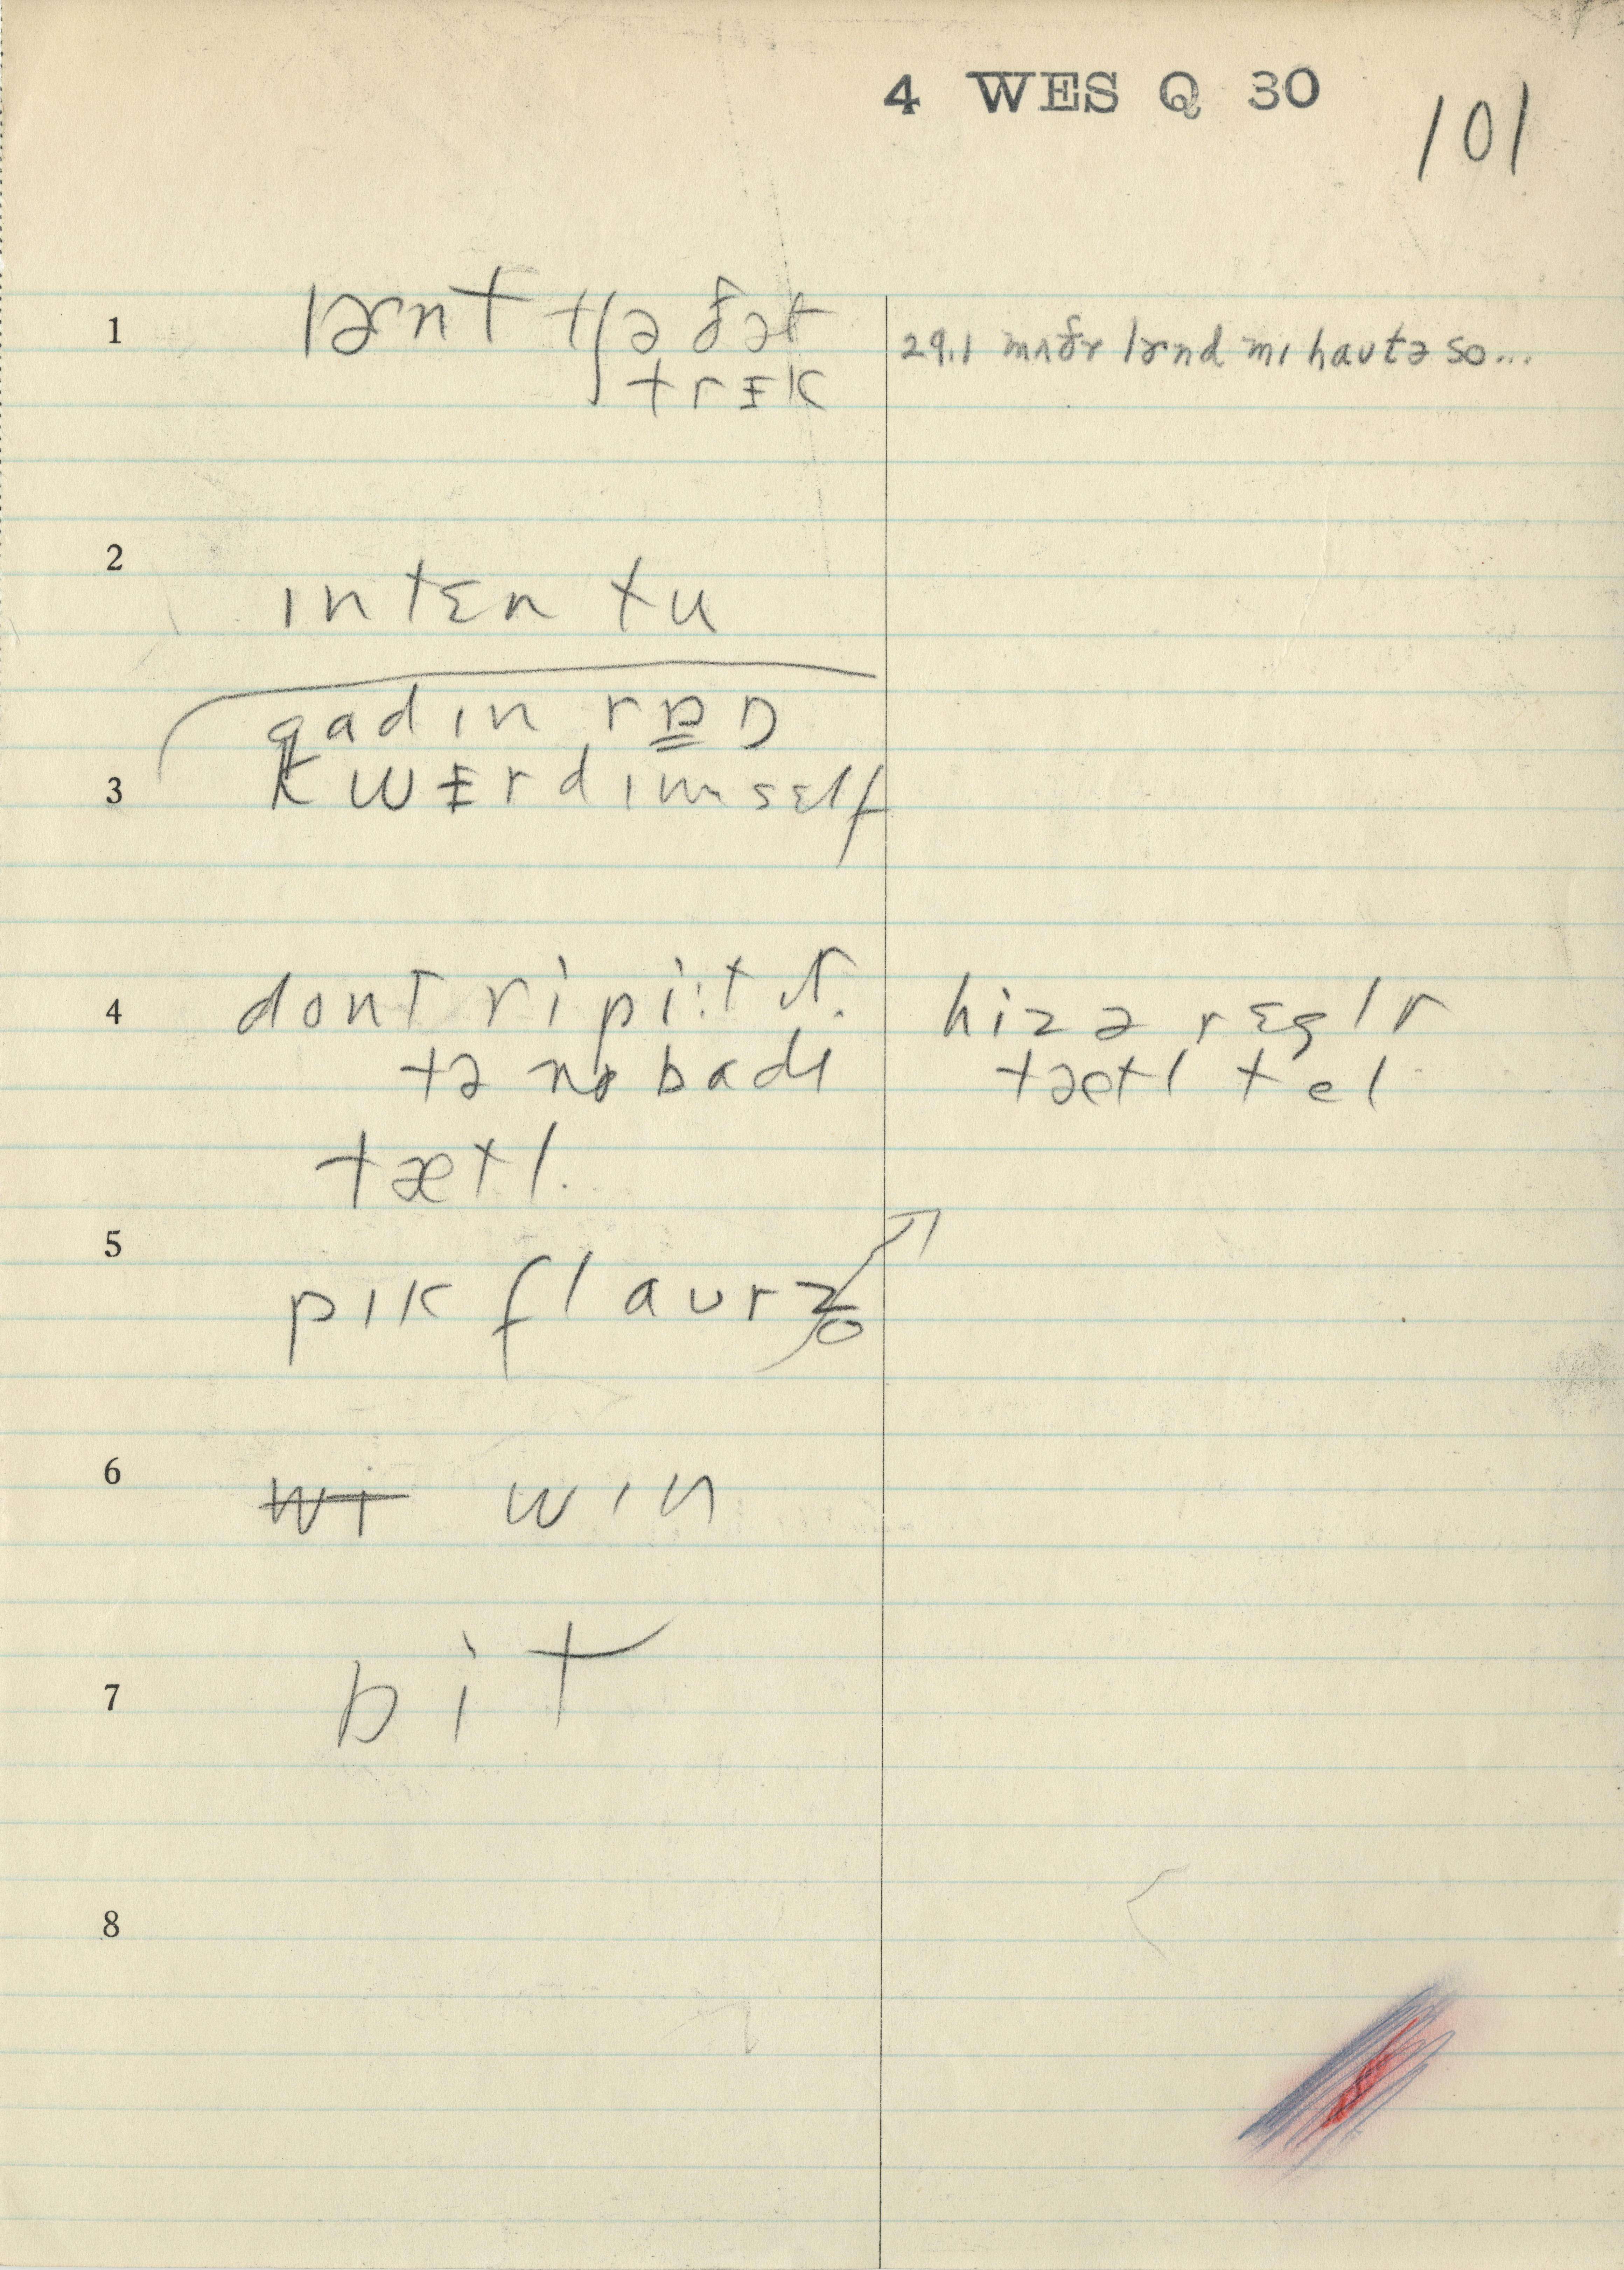 4 WES Q 30
101
1
lɚnt ðət
trɪk
29.1 mʌðr lɚnd mi hautə so...
2
ɪntɛn tu
gad ɪn rɒŋ
3
kwɪrd ɪmsɛlf
4
dont ripi:t ɪt.
tə nobadɪ
hiz ə rɛglr
tætl tel
tætl.
5
pɪk flaurz
6
wɪn
7
bit
8